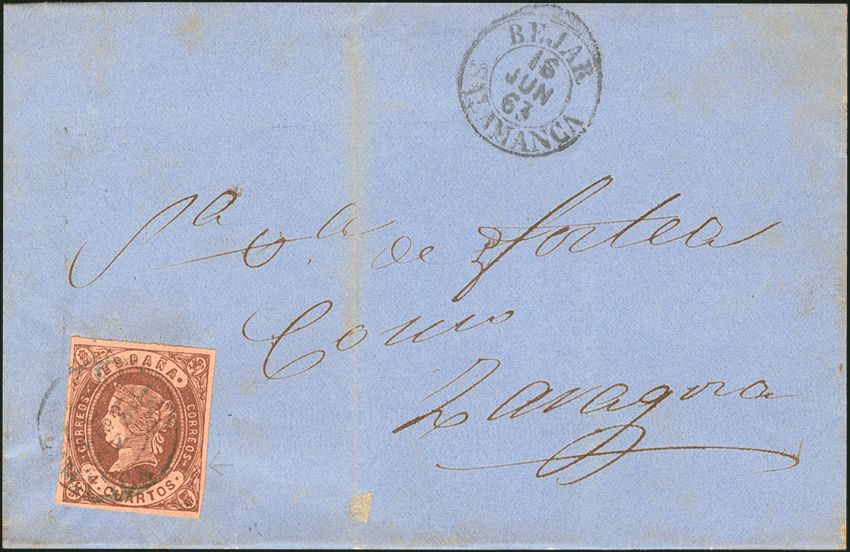 BEJAR
16
JUN
63
SALAMANCA
Sra Va. de Fortea
Como
Zaragoza
ESPAÑA
CORREOS
CORREOS
4 CUARTOS